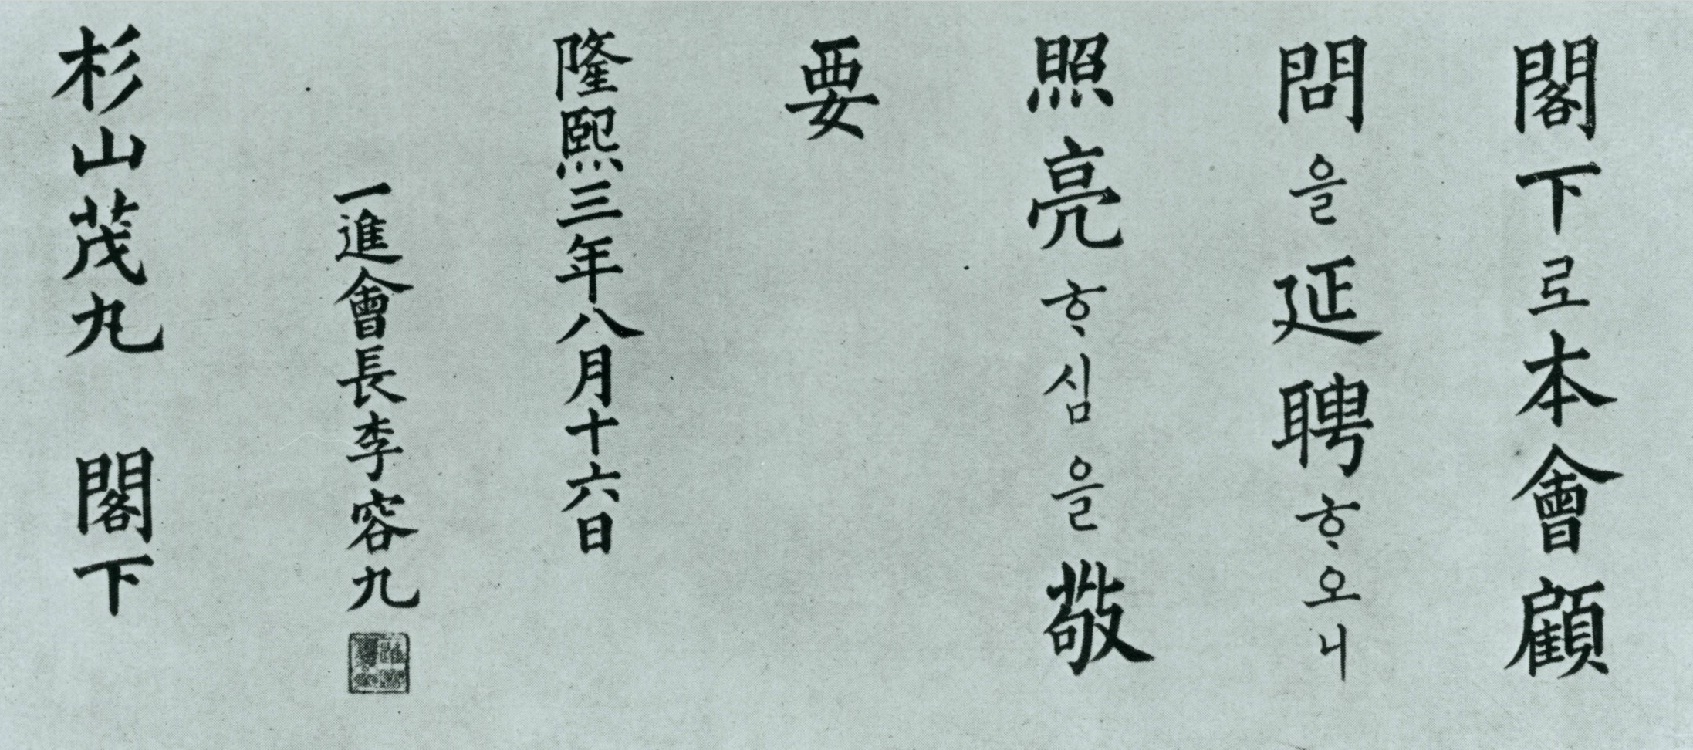 閣下로本會顧
問을延聘ᄒᆞ오니
照亮ᄒᆞ심을敬
要
隆熙三年八月十六日
一進會長李容九
杉山茂丸 閣下